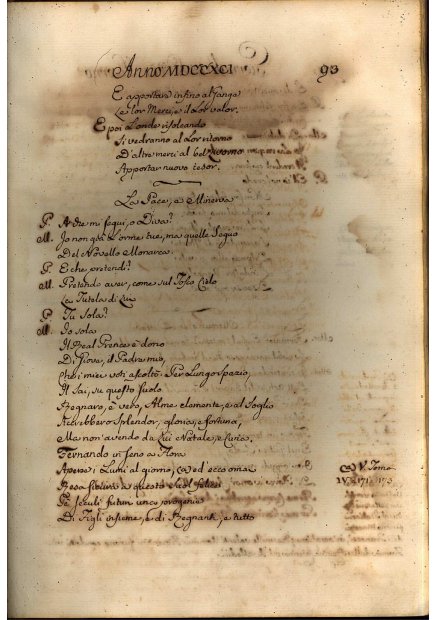 Anno MDCCXCI 93
E apportare infino al Gange
Le lor Merci, e il Lor valor.
E poi L'onde risolcando
Si vedranno al Lor ritorno
D'altre merci al bel Livorno
Apportar nuovo tesor.
La Pace, e Minerva
P. A che mi segui, o Diva?
M. Io non già L'orme tue, ma quelle Seguo
Del Novello Monarca.
P. E che pretendi?
M. Pretendo aver, come sul Tosco Cielo
La Tutela di Lui
P. Tu Sola?
M. Io sola
Il Real Prence è dono
Di Giove, il Padre mio,
Che i miei voti ascoltò. Per Lungo Spazio,
Il Sai, su questo suolo
Regnaro, è vero, Alme clementi, e al Soglio
Accrebbero Splendor, gloria, e fortuna,
Ma non avendo da Lui Natale, e Cuna.
Fernando in seno a Flora
Aperse i Lumi al giorno, (a) ed ecco omai (a) V. Tomo
Resa sicura a questo Suol felice
Pe' Secoli futuri
Di Figli insieme, e di Regnanti, e tutto